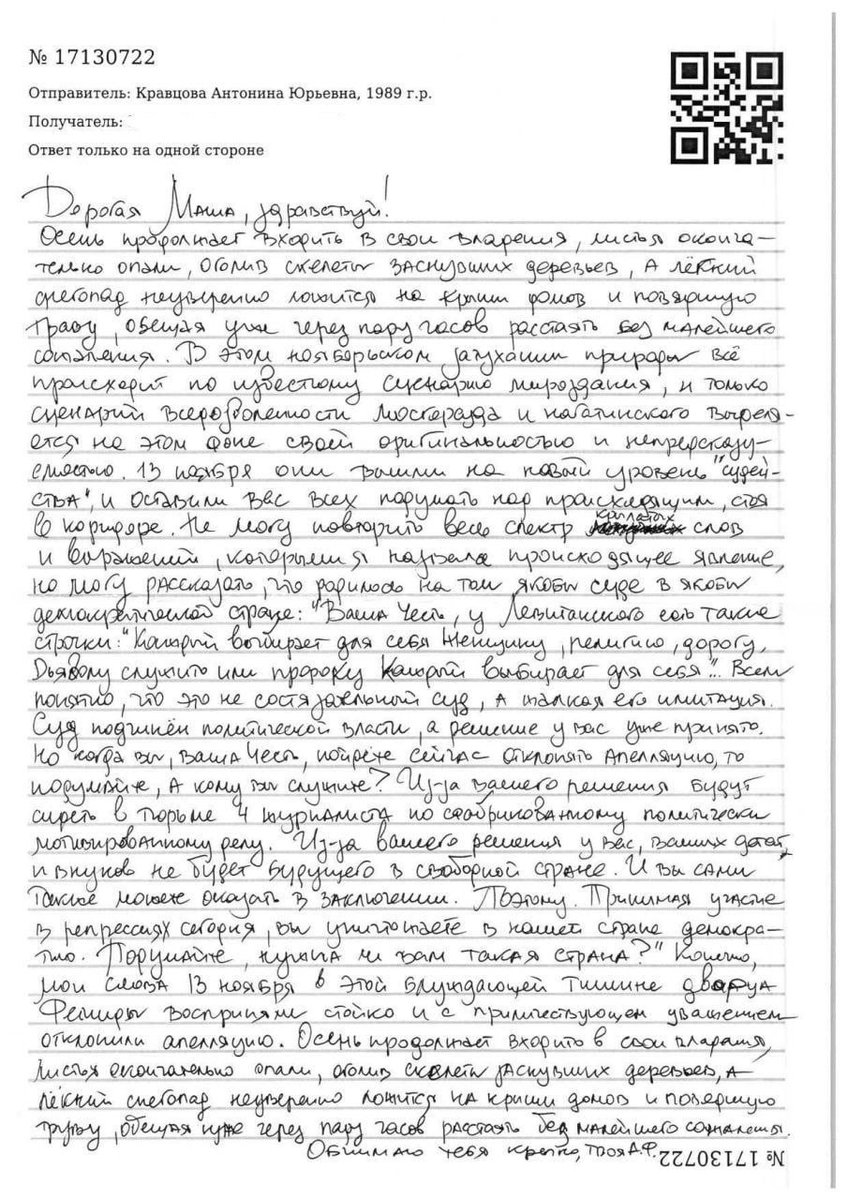 № 17130722
Отправитель: Кравцова Антонина Юрьевна, 1989 г.р.
Получатель:
Ответ только на одной стороне
Дорогая Маша, здравствуй!
Осень продолжает входить в свои владения, листья оконча-
тельно опали, оголив скелеты заснувших деревьев, а лёгкий
снегопад неуверенно ложится на крыши домов и повядшую
траву, обещая уже через пару часов растаять без малейшего
сожаления. В этом ноябрьском затухании природы всё
происходит по известному сценарию мироздания, и только
сценарий вседозволенности Мосгорсуда и нагатинского выделя-
ется на этом фоне своей оригинальностью и непредсказу-
емостью. 13 ноября они вышли на новый уровень "судей-
ства", и оставили вас всех подумать над происходящим, стоя
в коридоре. Не могу повторить весь спектр крылатых слов
и выражений, которыми я назвала происходящее явление,
но могу рассказать, что родилось на том якобы суде в якобы
демократической стране: "Ваша Честь, у Левитанского есть такие
строчки: "Каждый выбирает для себя Женщину, религию, дорогу.
Дьяволу служить или пророку Каждый выбирает для себя"... Всем
понятно, что это не состязательный суд, а жалкая его имитация.
Суд подчинён политической власти, а решение у вас уже принято.
Но когда вы, Ваша Честь, пойдёте сейчас отклонять апелляцию, то
подумайте, а кому вы служите? Из-за вашего решения будут
сидеть в тюрьме 4 журналиста по сфабрикованному политически
мотивированному делу. Из-за вашего решения у вас, ваших детей,
и внуков не будет будущего в свободной стране. И вы сами
также можете оказать в заключении. Поэтому. Принимая участие
в репрессиях сегодня, вы уничтожаете в нашей стране демокра-
тию. Подумайте, нужна ли вам такая страна?" Конечно,
мои слова 13 ноября в этой блуждающей тишине
Фемиды восприняли стойко и с приличествующем уважением
отклонили апелляцию. Осень продолжает входить в свои владения,
листья окончательно опали, оголив скелеты заснувших деревьев, а
лёгкий снегопад неуверенно ложится на крыши домов и повядшую
траву, обещая уже через пару часов растаять без малейшего сожаления.
Обнимаю тебя крепко, твоя А.Ф.
№ 17130722